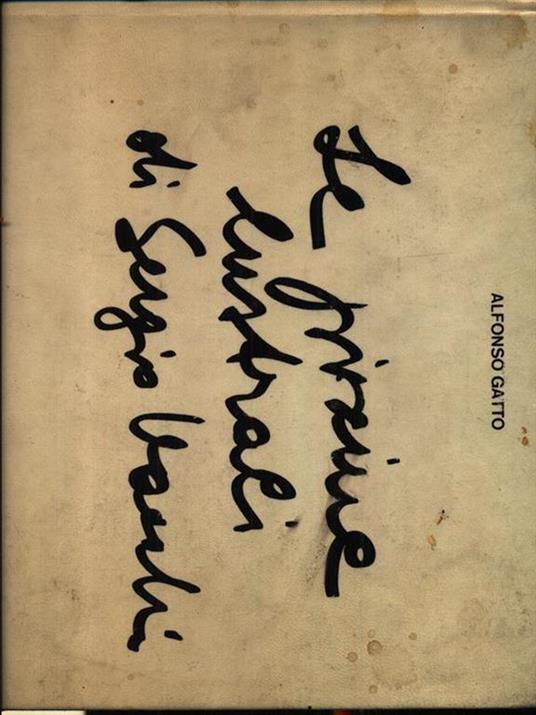 ALFONSO GATTO
Le piscine
lustrali
di Sergio Vacchi